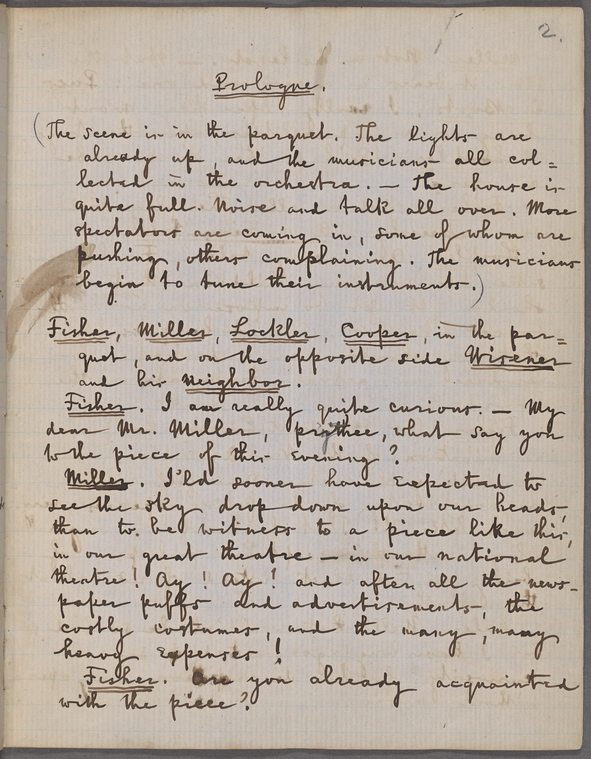 2.
Prologue.
(The scene is in the parquet. The lights are
already up, and the musicians all col=
lected in the orchestra. — The house is
quite full. Noise and talk all over. More
spectators are coming in, some of whom are
pushing, others complaining. The musicians
begin to tune their instruments.)
Fisher, Miller, Lockler, Cooper, in the par=
quet, and on the opposite side Wisener
and his neighbor.
Fisher. I am really quite curious. — My
dear Mr. Miller, prythee, what say you
to the piece of this evening?
Miller. I'ld sooner have expected to
see the sky drop down upon our heads,
than to be witness to a piece like this,
in our great theatre — in our national
theatre! Ay! Ay! and after all the news-
paper puffs and advertisements, the
costly costumes, and the many, many
heavy expenses!
Fisher. Are you already acquainted
with the piece?